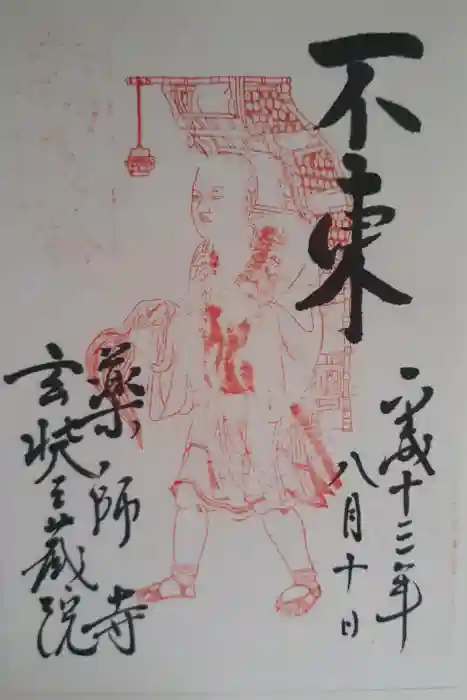 不東
平成十二年
八月十日
薬師寺
玄奘三蔵院